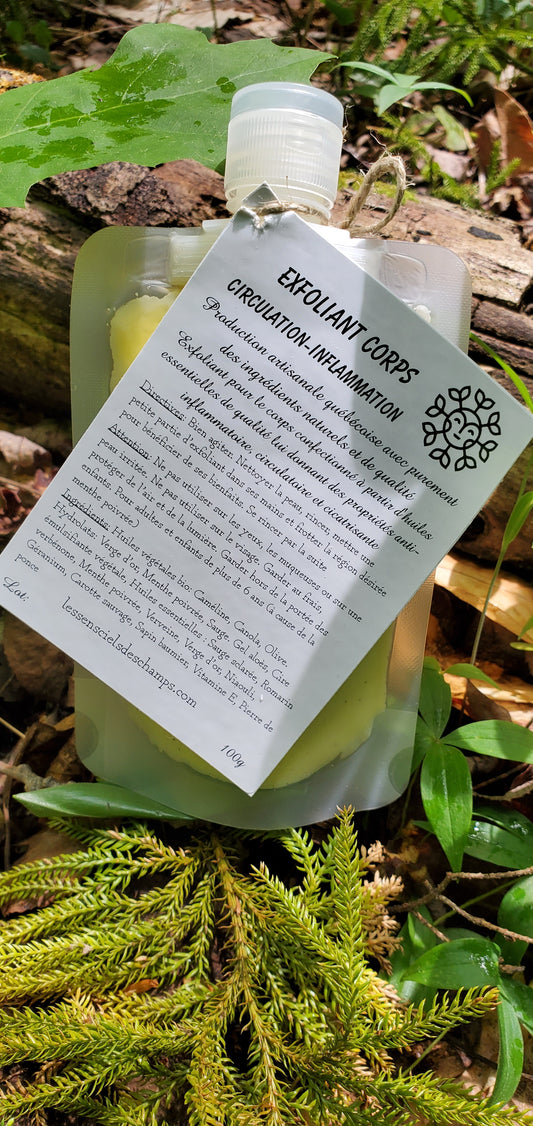 EXFOLIANT CORPS
CIRCULATION-INFLAMMATION
Production artisanale québécoise avec purement
des ingrédients naturels et de qualité
Exfoliant pour le corps confectionné à partir d'huiles
essentielles de qualité lui donnant des propriétés anti-
inflammatoire, circulatoire et cicatrisante
Directives: Bien agiter. Nettoyer la peau, rincer, mettre une
petite partie d'exfoliant dans ses mains et frotter la région désirée
pour bénéficier de ses bienfaits. Se rincer par la suite
Attention: Ne pas utiliser sur les yeux, les muqueuses ou sur une
peau irritée. Ne pas utiliser sur le visage. Garder au frais,
protéger de l'air et de la lumière. Garder hors de la portée des
enfants. Pour adultes et enfants de plus de 6 ans (à cause de la
menthe poivrée.)
Ingrédients: Huiles végétales bio: Caméline, Canola, Olive.
Hydrolats: Verge d'or, Menthe poivrée, Sauge. Gel aloès, Cire
émulsifiante végétale, Huiles essentielles : Sauge sclarée, Romarin
Verbénone, Menthe poivrée, Verveine, Verge d'or, Niaouli,
Géranium, Carotte sauvage, Sapin baumier, Vitamine E, Pierre de
ponce
Lot:
lessenscielsdeschamps.com
100g